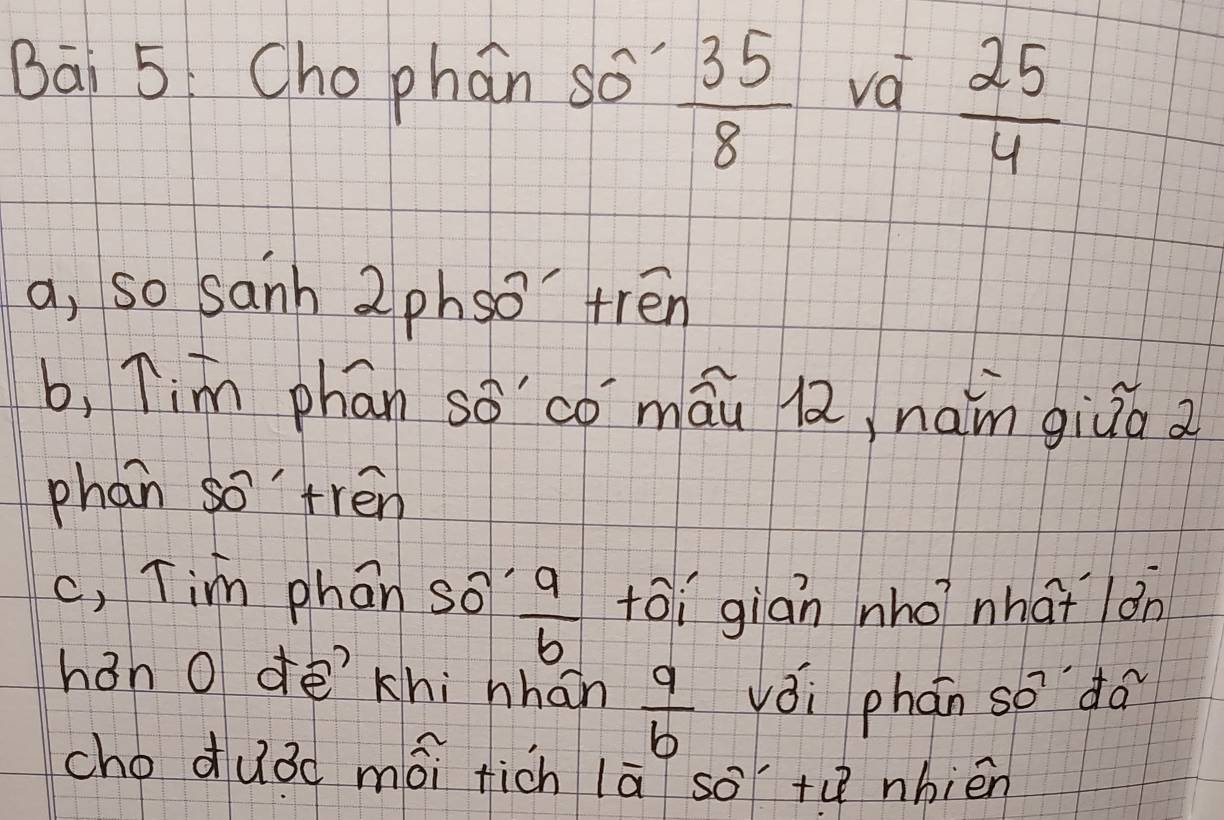 Bài 5: Cho phân số 35/8 và 25/4
a, so sánh 2 ph số trên
b, Tìm phân số có mẫu 12, nằm giữa 2
phân số trên
c, Tìm phân số a/b tối giản nhỏ nhất lớn
hơn 0 để khi nhân a/b với phân số đã
cho được mỗi tích là số tự nhiên